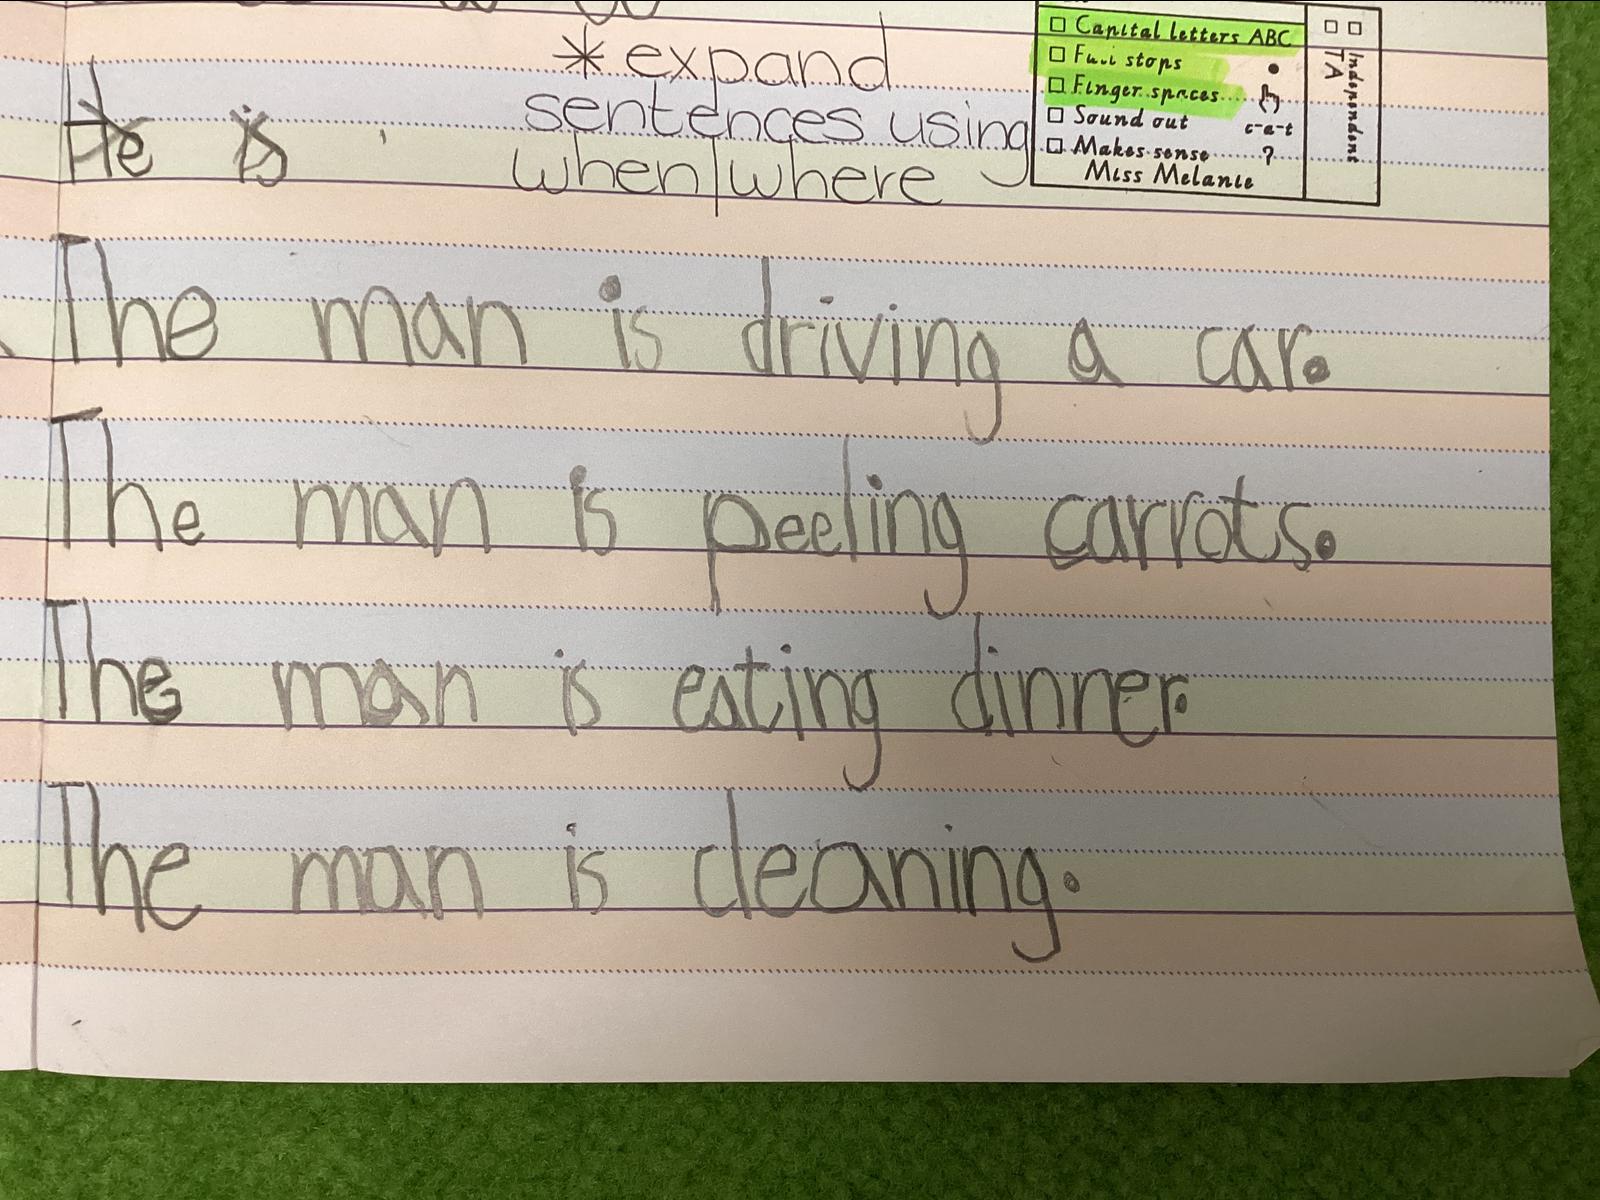 Capital letters ABC
Full stops
Finger spaces
Sound out c-a-t
Makes sense ?
Miss Melanie
Independent
TA
* expand
sentences using
when/where
He is
The man is driving a car.
The man is peeling carrots.
The man is eating dinner.
The man is cleaning.